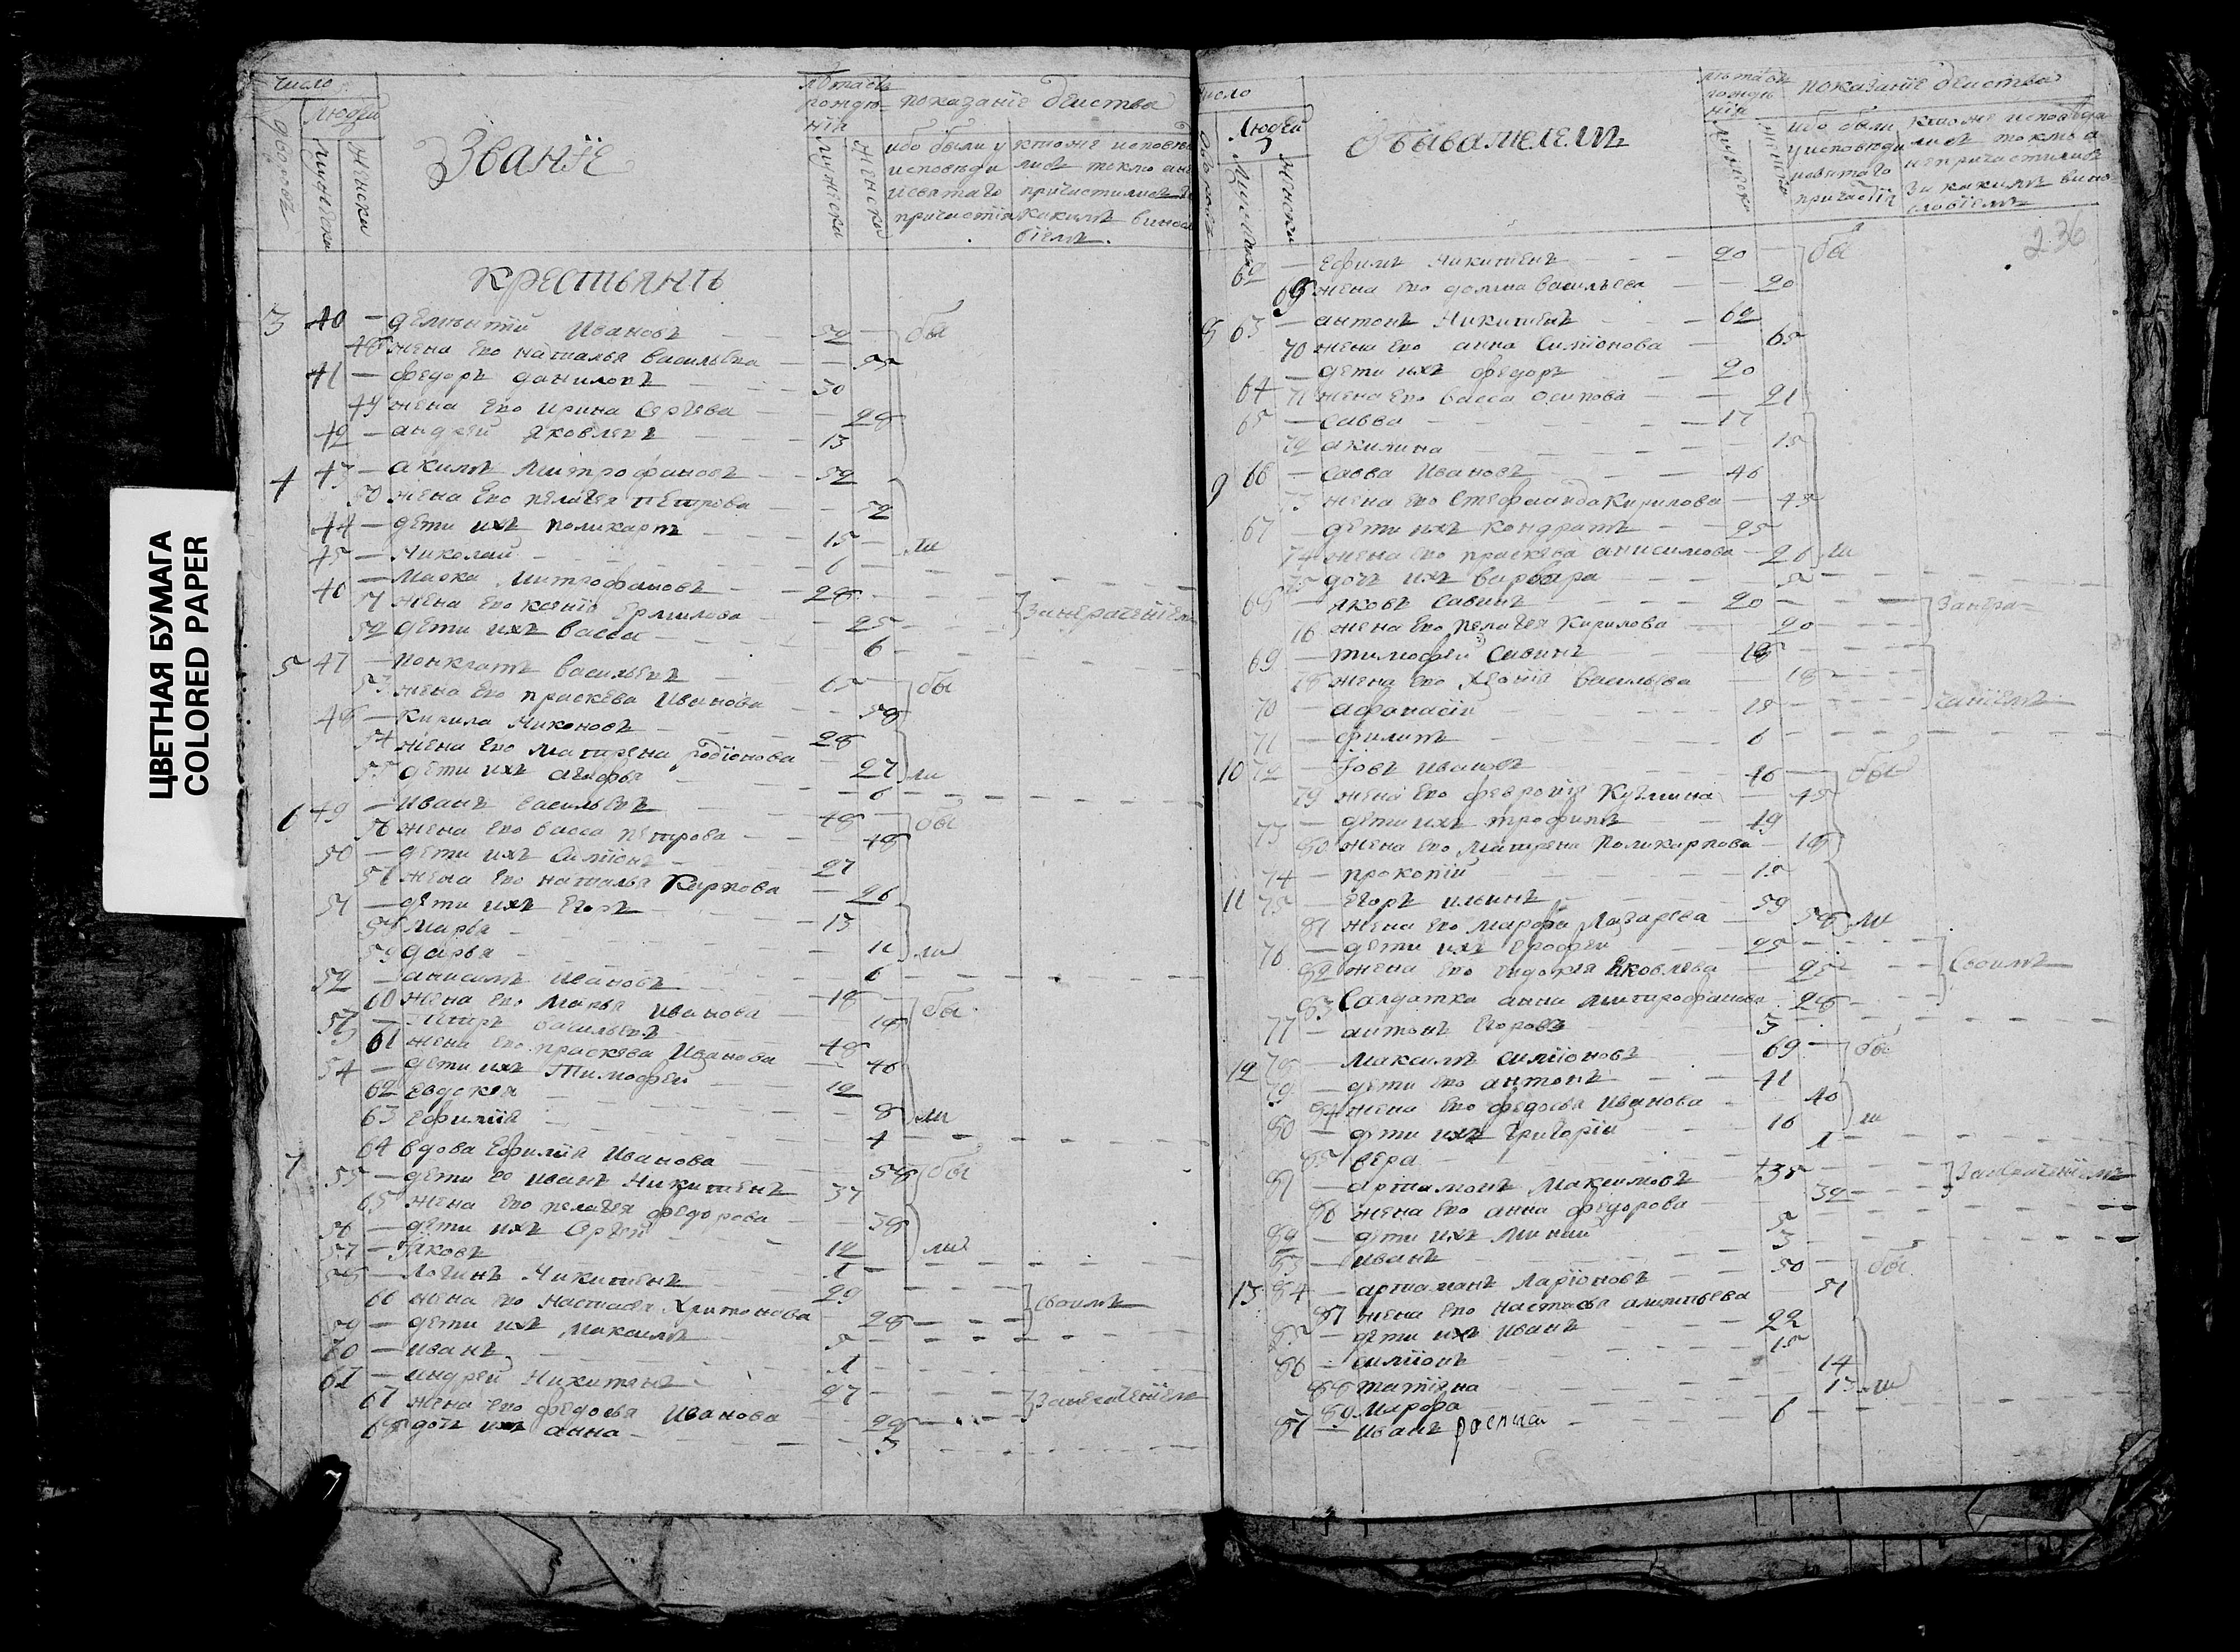 ЦВЕТНАЯ БУМАГА
COLORED PAPER
Число
людей
дворовъ
мужеска
женска
Званїе
лѣта отъ рожде
нїя
мужеска
женска
показанїе действа
ибо были у
исповеди
исвятаго
причастїя
ктоже исповеда
лисѣ токмо
причастилисѣ
какимъ винос
вїемъ
крестьянѣ
3 40 — дементїй Ивановъ — 52 — бы
48 жена его наталья васильева — — 55
41 — федоръ даниловъ — 30
49 жена его ирина Сергѣева — — 28
42 — андрей яковлевъ — 13
4 43 — акимъ Митрофановъ — 52
50 жена его пелагея петрова — — 52
44 — дети ихъ поликарпъ — 15 — ли
45 — Николай — 6
46 — Марка Митрофановъ — 28
51 жена его Ермилова — 25 — занерачениемъ
52 дети ихъ васса — 6
5 47 — понкратъ васильевъ — 65 — бы
53 жена его праскева Иванова — 58
48 — Кирила Никоновъ — 28
54 жена его Матрена родїонова — 27 ли
55 дети ихъ агафья — 6
6 49 — Иванъ васильевъ — 48 — бы
56 жена его васса петрова — 48
50 — дети ихъ Симїонъ — 27
57 жена его наталья Карпова — 26
51 — дети ихъ Егоръ — 13
58 Марья — 11 ли
59 дарья — 6
52 — анисимъ Ивановъ — 18 — бы
60 жена его Марья Иванова — 18
53 — Петръ васильевъ — 48
61 жена его праскева Иванова — 46
54 — дети ихъ Тимофей — 12
62 Евдокея — 8 ли
63 Ефимїя — 4
7 64 вдова Ефимїя Иванова — 58 бы
55 — дети ее иванъ Никитенъ 37
65 жена его пелагея федорова — 38
56 — дети ихъ Сергей — 12 ли
57 — Яковъ — 1
58 — Логинъ Никитенъ — 29
66 жена его настасья Харитонова 28 — своимъ
59 — дети ихъ Максимъ — 5
60 — иванъ — 1
61 — андрей Никитенъ — 27
67 жена его федосья Иванова — 28 — занерачениемъ
68 дочь ихъ анна — 3
7
число
Людей
мужеска
женска
Обывателемъ
лѣта отъ
рожде
нїя
показанїе действа
ибо были
уисповеди
исвятаго
причастїя
ктоже исповѣда
лисѣ токмо а
непричастилисѣ
за какимъ вино
словїемъ
236
62 — Ефимъ Никитенъ — 20 бы
69 жена его домна васильева — — 20
8 63 — антонъ Никитенъ — 62
70 жена его анна Симїонова — 65
64 — дети ихъ федоръ — 20
71 жена его васса осипова — — 21
65 — Савва — 17
72 акилина — 15
9 66 — Савва Ивановъ — 46
73 жена его Стефанида Кирилова — 45
67 — дети ихъ Кондратъ — 25
74 жена его праскева анисимова — 26 ли
75 дочь ихъ варвара — 5
68 — яковъ Савинъ — 20 — занера
76 жена его пелагея Кирилова — 20
69 — тимофей Савинъ — 18
78 жена его васильева — 18
70 — афанасїй — 15 — чанїемъ
71 — филипъ — 6
10 72 — Іовъ ивановъ — 46 — бы
79 жена его феврония Кузмина — 45
73 — дети ихъ трофимъ — 19
80 жена его Матрена Поликарпова — 18
74 — прокопїй — 15
11 75 — Егоръ ильинъ — 59
81 жена его Марфа Лазарева — 58 ли
76 — дети ихъ Ерофеи — 25
82 жена его евдокея яковлева — 25 — своимъ
83 Салдатка анна митрофанова 28
77 — антонъ Егоровъ — 3
12 78 — Максимъ симїоновъ — 69 — бы
79 — дети его антонъ — 41
84 жена его федосья Иванова — 40
80 — дети ихъ Григорїи — 16 ли
85 вера — 1
81 — артамонъ Максимовъ — 35 — занерачениемъ
86 жена его анна федорова — 32
82 — дети ихъ Миней — 5
83 — иванъ — 3
13 84 — артаманъ Ларїоновъ — 50 — бы
87 жена его настасья — 51
85 — дети ихъ Иванъ — 22
86 — симїонъ — 15
88 татияна — 14
89 Марфа — 13 ли
87 — иванъ — 6